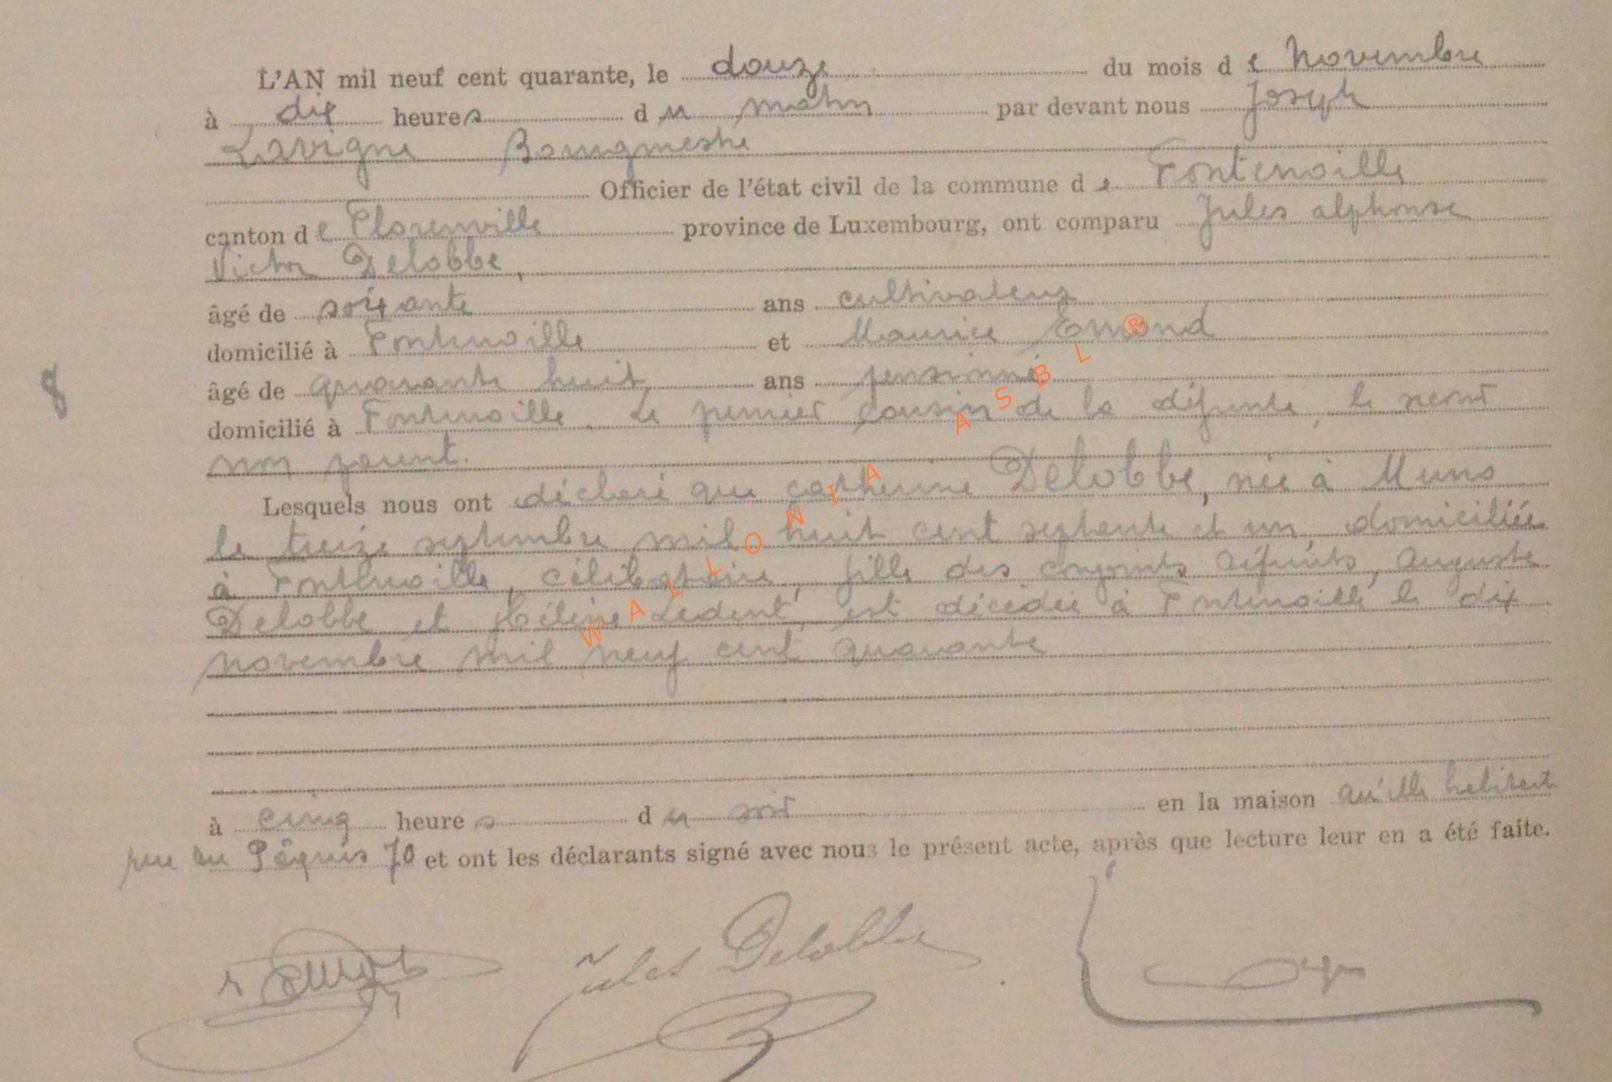 L'AN mil neuf cent quarante, le douze du mois de Novembre
à dix heures du matin par devant nous Joseph
Lavigne Bourgmestre
Officier de l'état civil de la commune de Fontenoille
canton de Florenville province de Luxembourg, ont comparu Jules alphonse
Victor Delobbe,
âgé de soixante ans cultivateur
domicilié à Fontenoille et Maurice Emond
âgé de quarante huit ans pensionné
8
domicilié à Fontenoille. Le premier cousin de la défunte, le second
non parent.
Lesquels nous ont déclaré que catherine Delobbe, née à Muno
le treize septembre mil huit cent septante et un, domiciliée
à Fontenoille, célibataire, fille des conjoints défunts, Auguste
Delobbe et Hélène Ledent, est décédée à Fontenoille le dix
novembre mil neuf cent quarante
à cinq heures du soir en la maison qu'elle habitait
rue du Pâquis 70 et ont les déclarants signé avec nous le présent acte, après que lecture leur en a été faite.
Jules Delobbe
WALLONIA ASBL ®